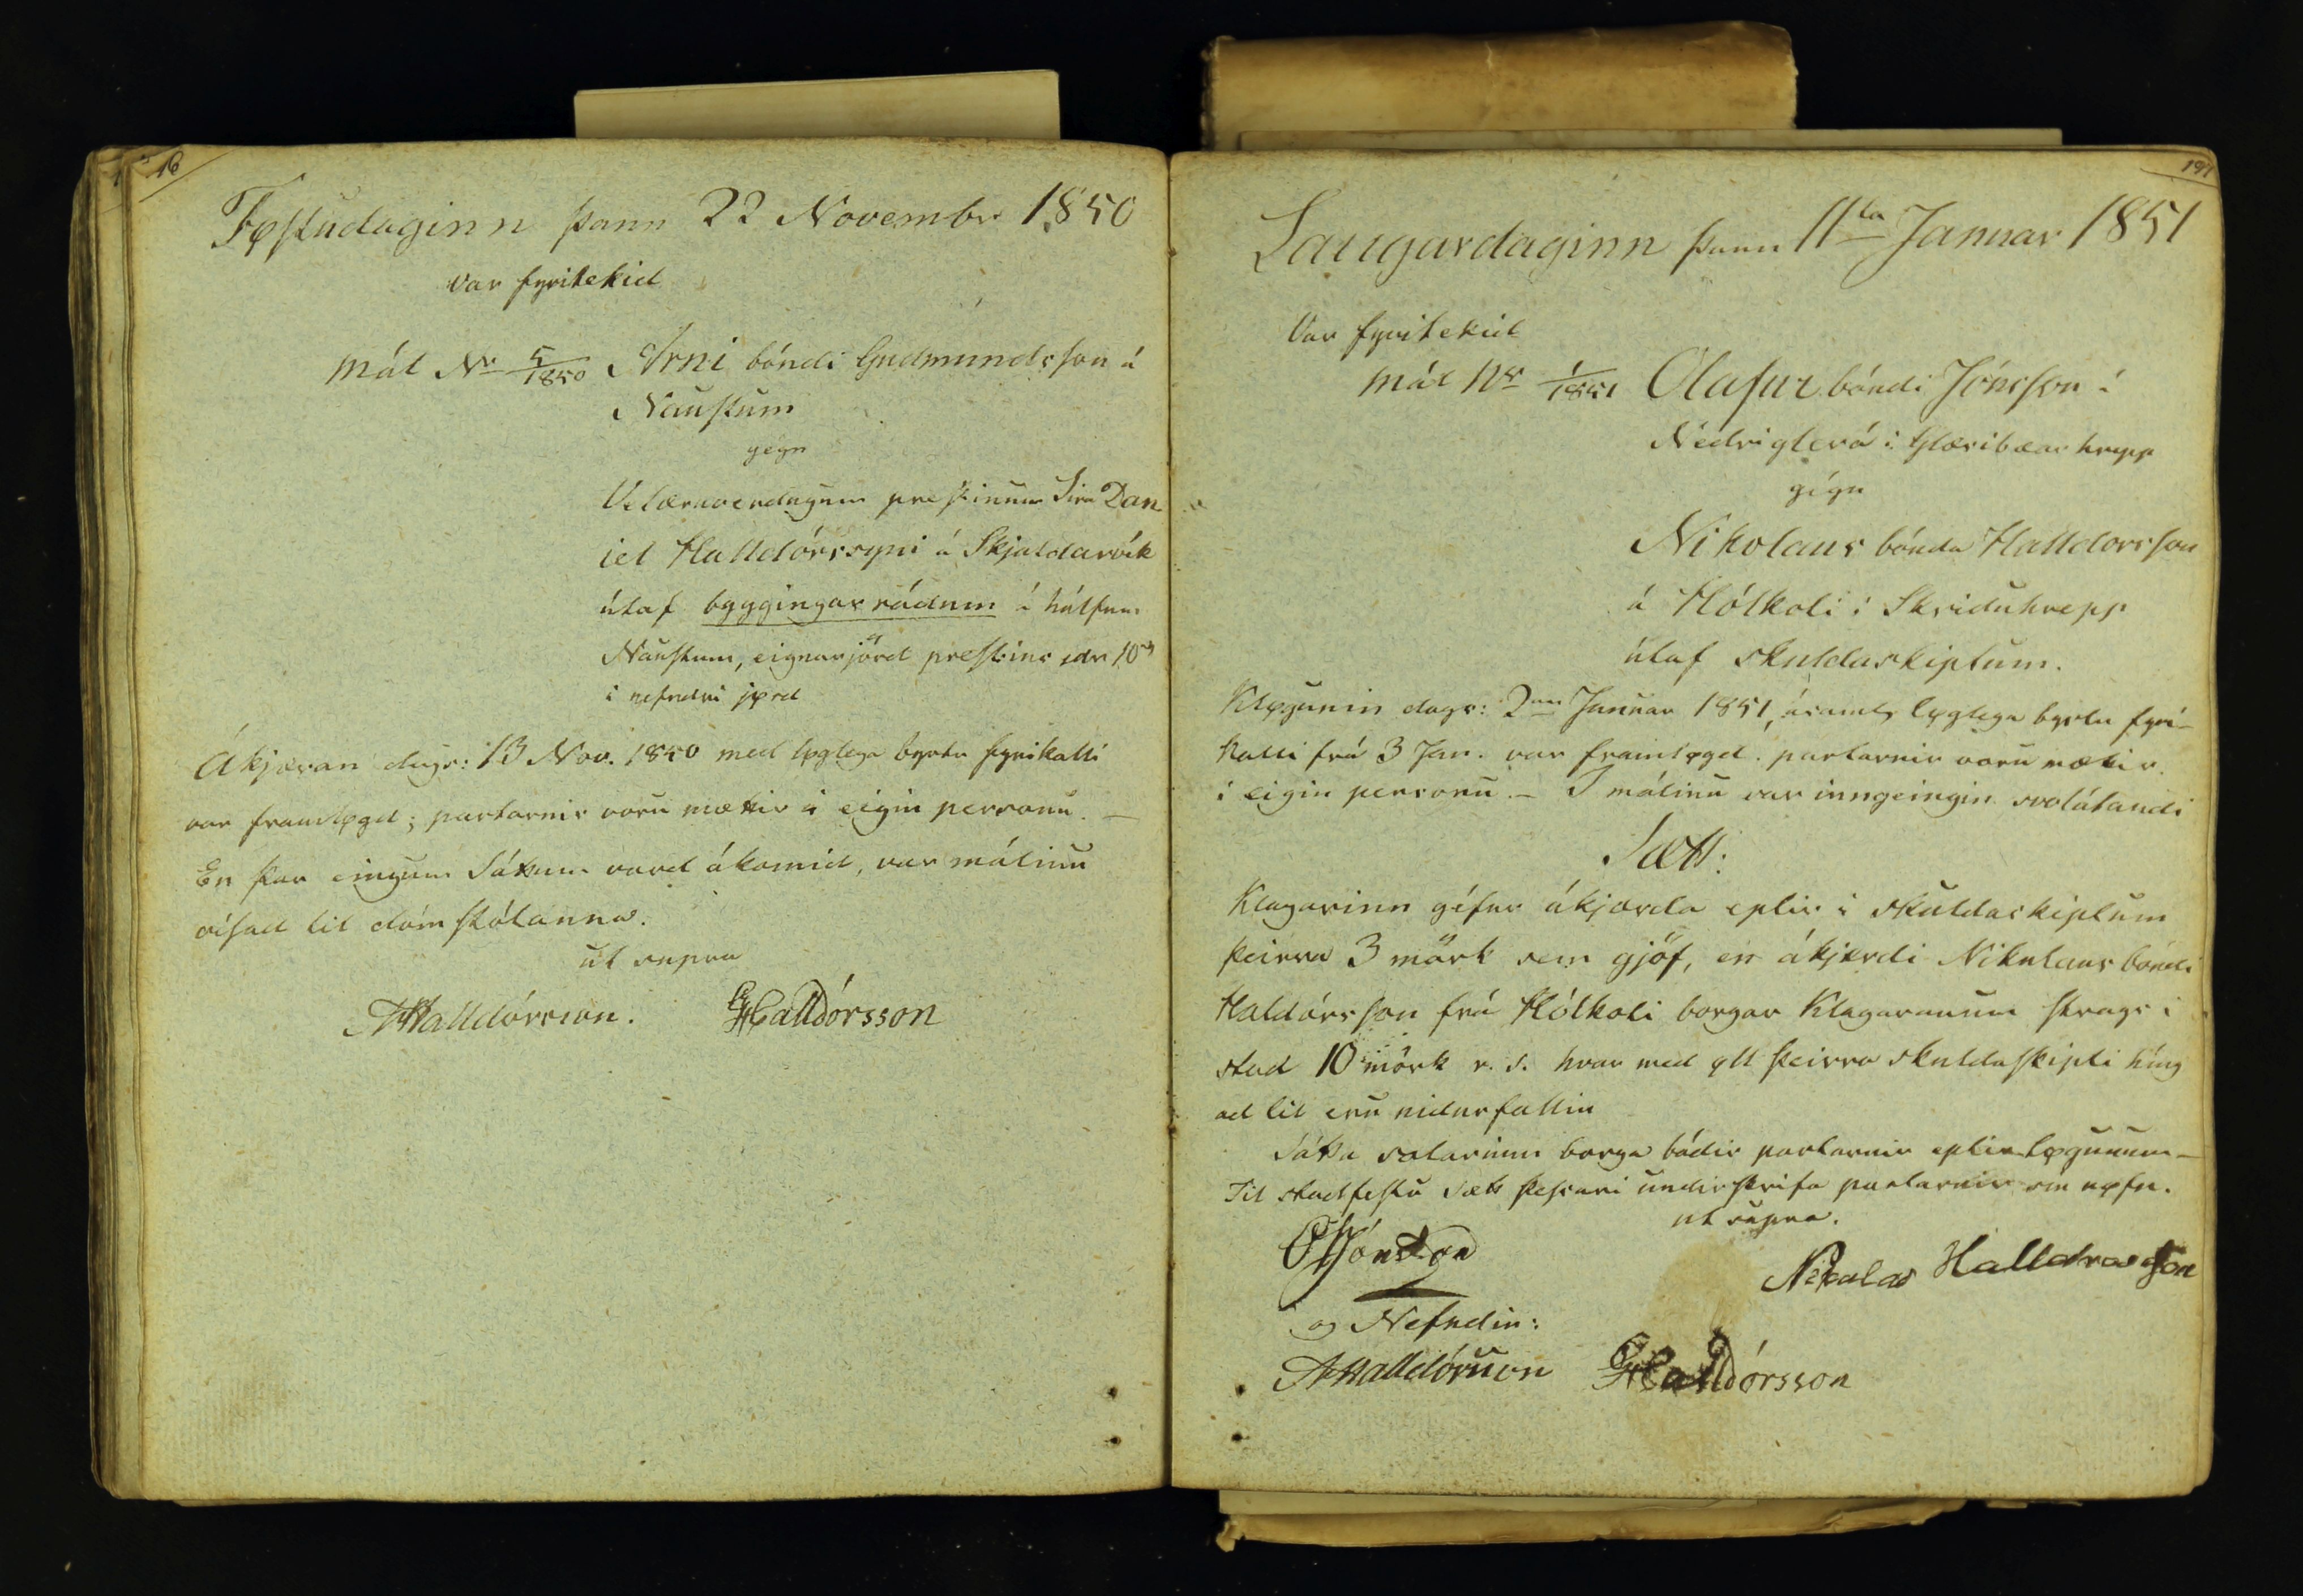 16
Føstudaginn þann 22 Novembr 1850
var fyritekid
mál Nr 5/1850 Arni bóndi Gudmundsson á
Naustum
gegn
Velæruverdugum prestinum Sira Dan
iel Halldórssyni á Skjaldarvík
útaf byggingar rádum á hálfum
Naustum, eignarjörd prestins edr 10
i nefndri jørd
Ákjæran dags: 13 Nov. 1850 med løglega byrtu fyrikalli
var framløgd; partarnir voru mættir i eigin personu. —
En þar eingum Sáttum vard ákomid, var málinu
vísad til dómstólanna.
ut supra
AHalldórsson. GHalldórsson
191
Laugardaginn þann 11ta Januar 1851
Var fyritekid
mál Nr 1/1851 Olafur bóndi Jónsson á
Nedriglerá i Glæsibæar hrepp
gégn
Nikolaus bónda Halldorsson
á Hólkoti i Skriduhrepp
útaf skuldaskiptum.
Kløgunin dags: 2an Januar 1851, ásamt løglega byrtu fyri-
kalli frá 3 Jan. var framløgd. partarnir voru mættir
i eigin personu. — I málinu var inngeingin svolátandi
Sætt:
Klagarinn géfur ákjærda eptir i skuldaskiptum
þeirra 3 mörk sem gjöf, en ákjærdi Nikulaus bóndi
Haldórsson frá Hólkoti borgar Klagaranum strags i
stad 10 mörk r. s. hvar med øll þeirra skuldaskipti híng
ad til eru nidurfallin
Sátta salarium borga bádir partarnir eptir løgunum —
Til stadfestu sætt þessari undirskrifa partarnir sín nøfn.
ut supra.
OJónsson
Nikulas Halldorsson
og Nefndin:
AHalldórsson GHalldórsson